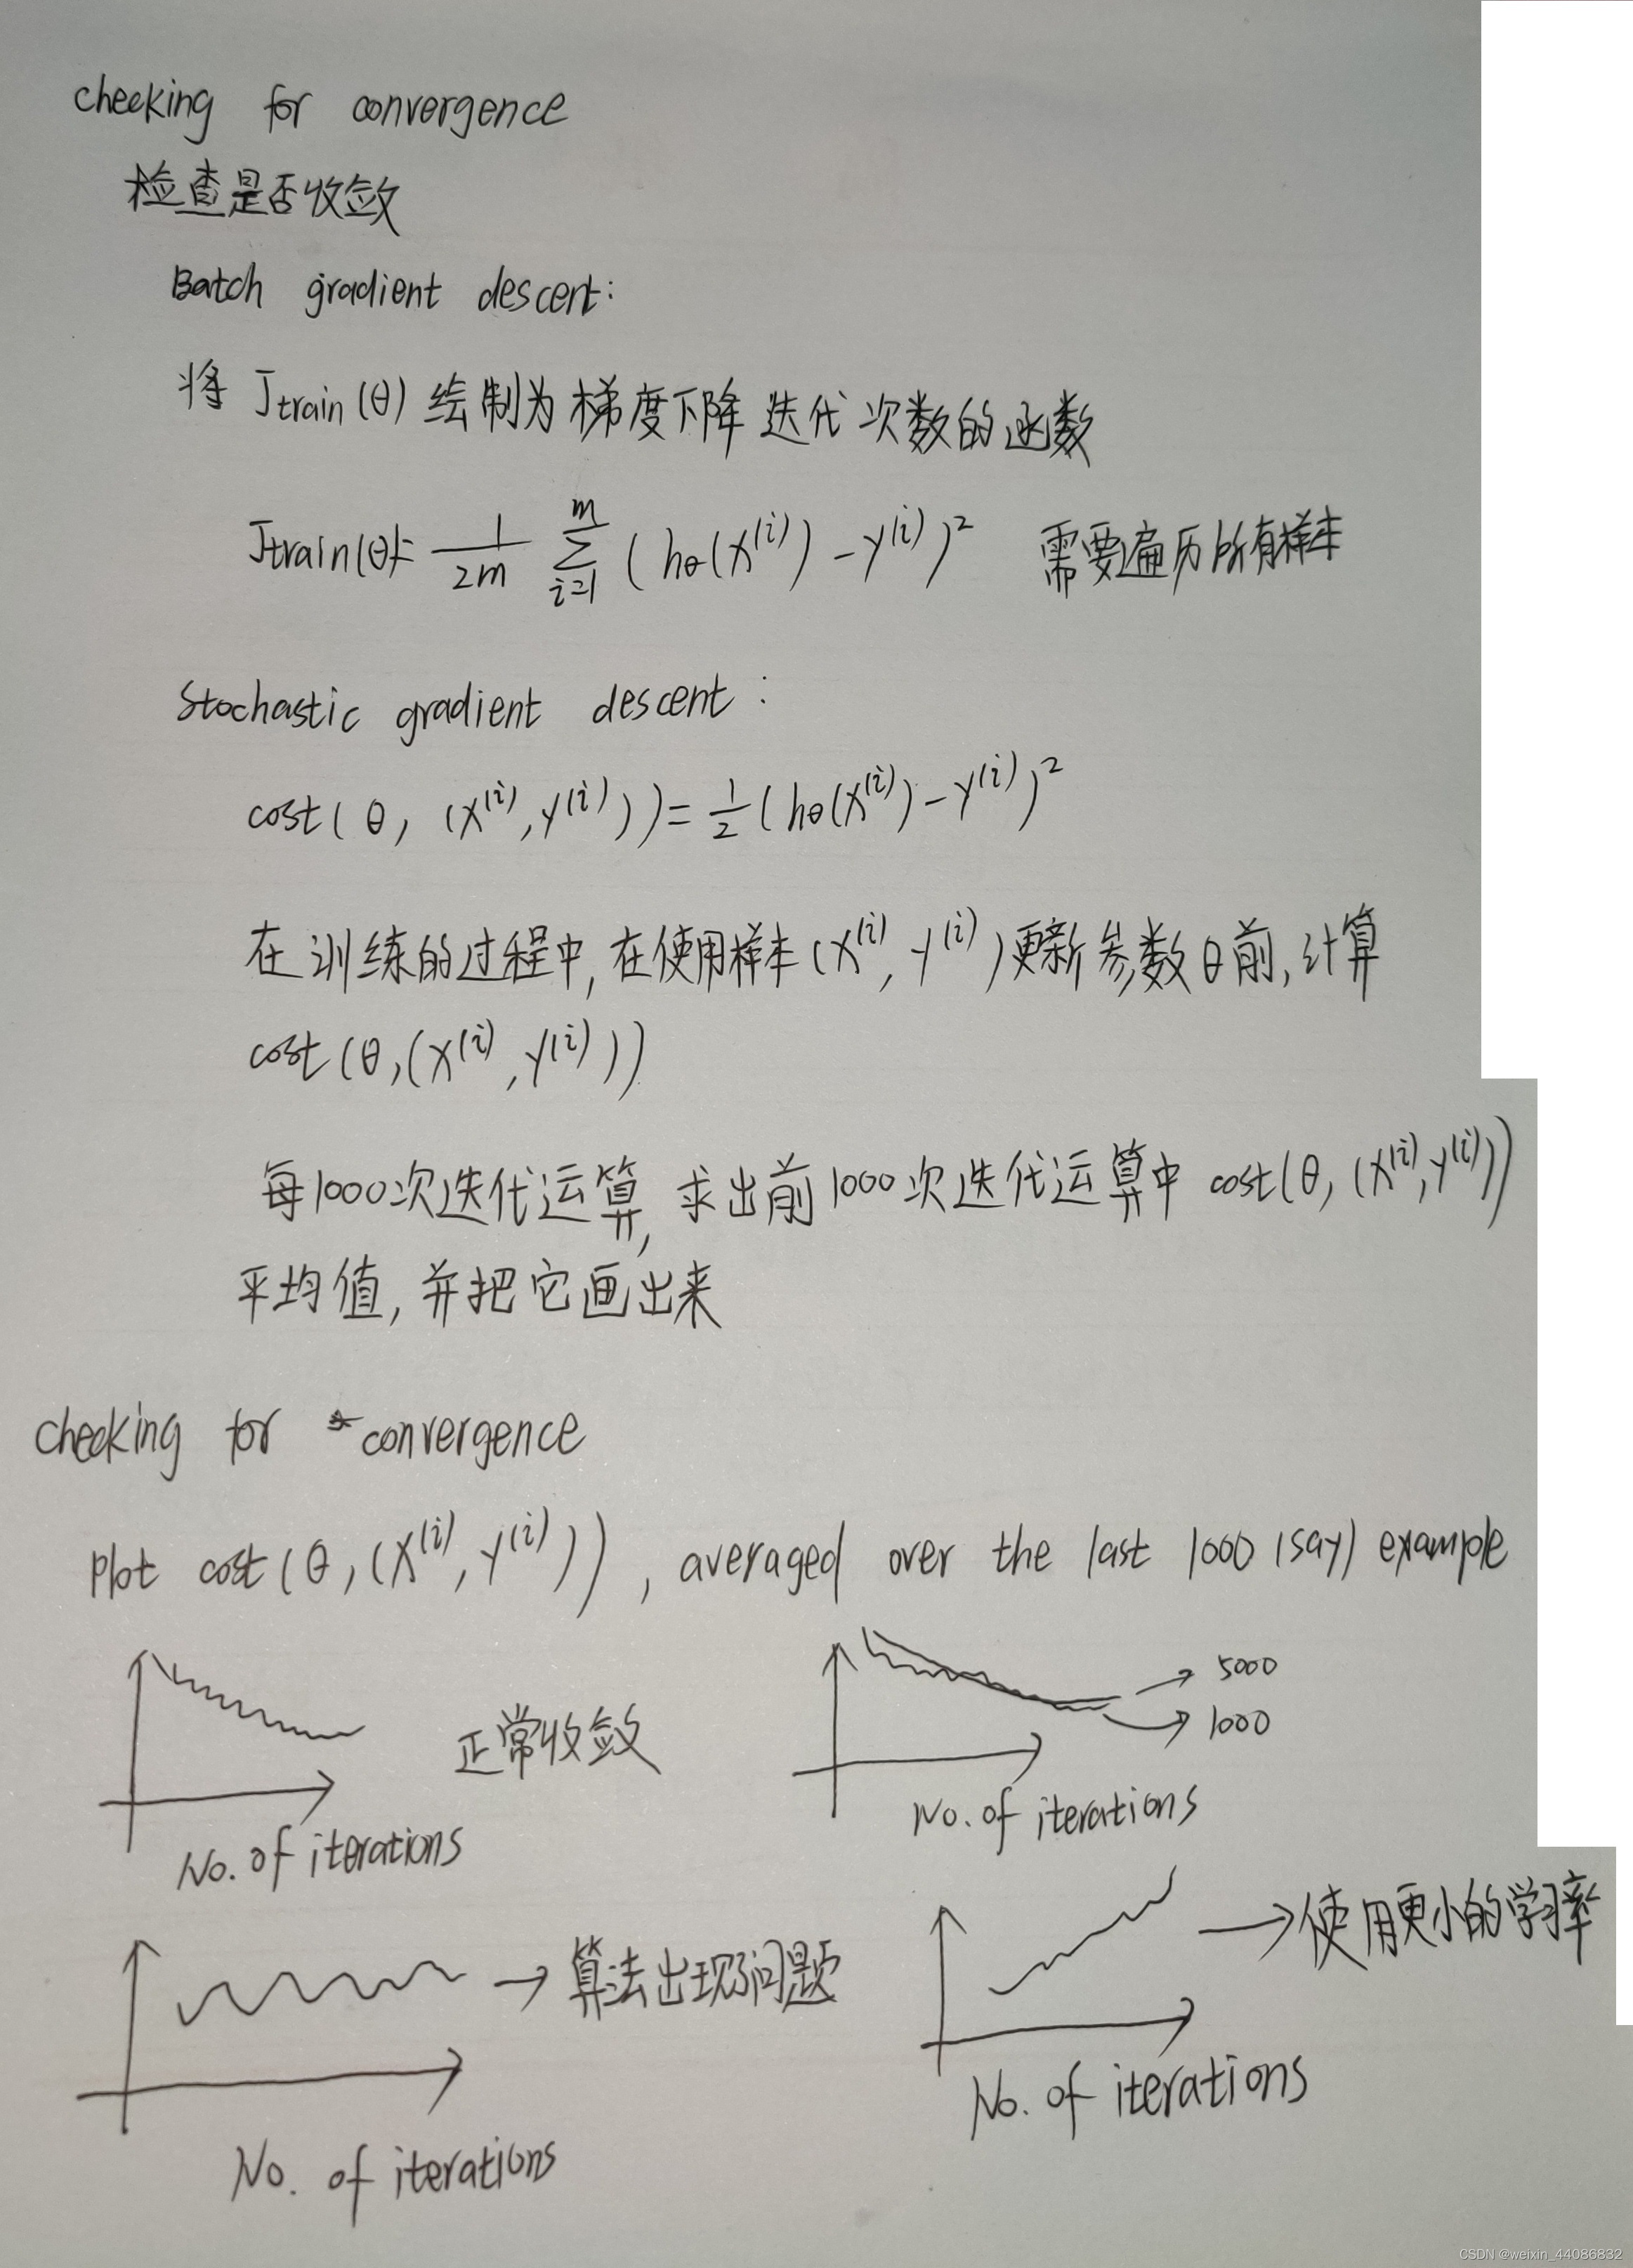 checking for convergence
检查是否收敛
Batch gradient descent:
将 Jtrain(θ) 绘制为梯度下降 迭代次数的函数
Jtrain(θ)= 1/2m Σ i=1 m (hθ(x^(i)) - y^(i))² 需要遍历所有样本
Stochastic gradient descent:
cost(θ, (x^(i), y^(i))) = 1/2 (hθ(x^(i)) - y^(i))²
在训练的过程中, 在使用样本(x^(i), y^(i))更新参数θ前, 计算
cost(θ,(x^(i), y^(i)))
每1000次迭代运算, 求出前1000次迭代运算中 cost(θ, (x^(i), y^(i)))
平均值, 并把它画出来
checking for convergence
Plot cost(θ, (x^(i), y^(i))), averaged over the last 1000 (say) example
正常收敛
No. of iterations
5000
1000
No. of iterations
算法出现了问题
No. of iterations
使用更小的学习率
No. of iterations
CSDN @weixin_44086832